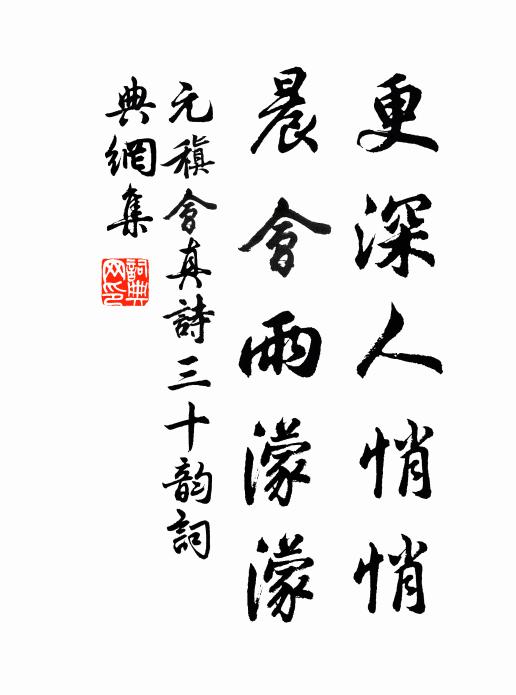 更深人悄悄
晨會雨濛濛
元稹會真詩三十韵詞
典網集
詞典網印